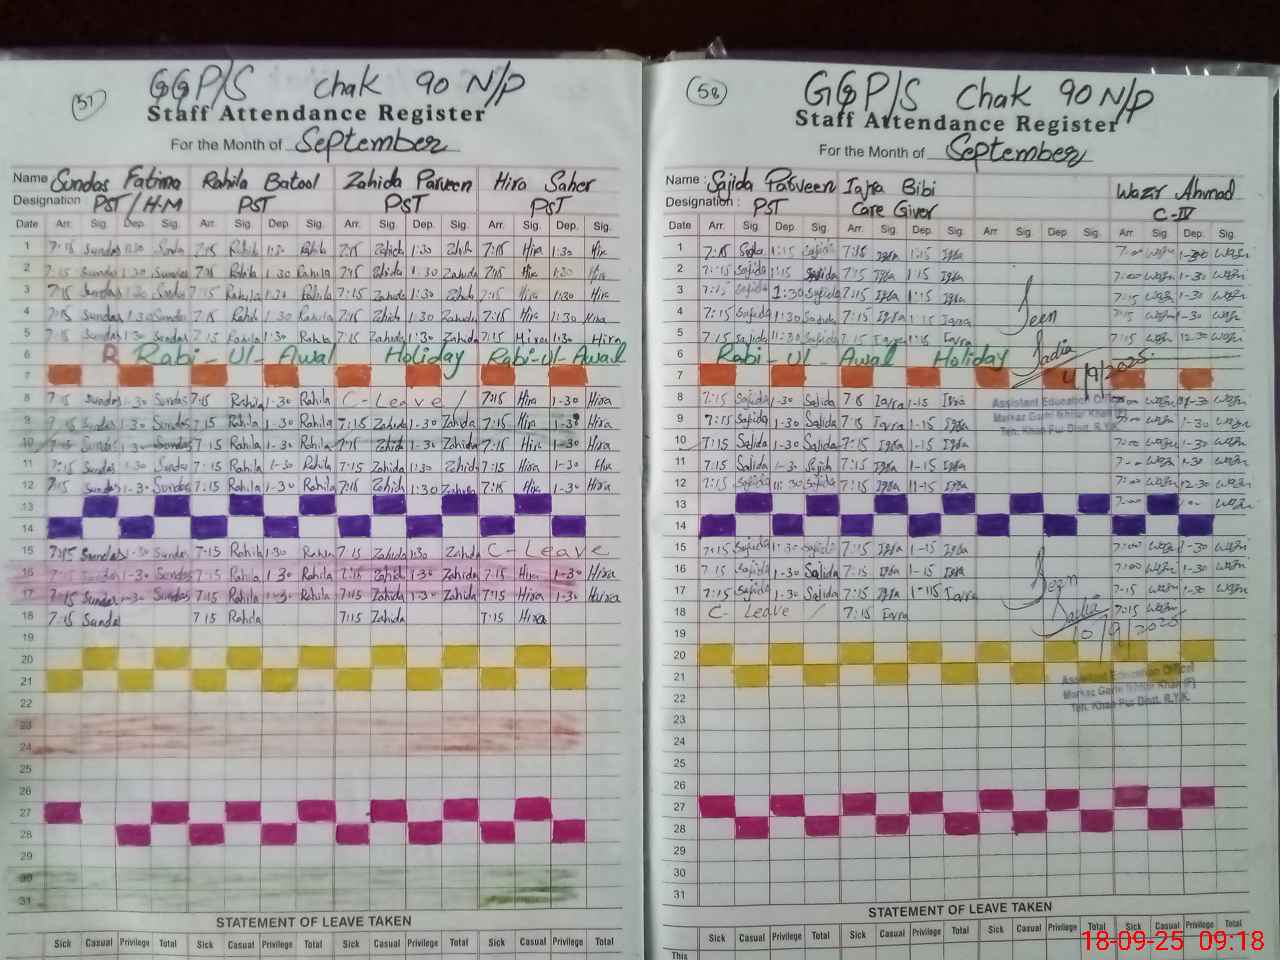 57
GGP/S Chak 90 N/P
Staff Attendance Register
For the Month of September
Name Sundas Fatima Rahila Batool Zahida Parveen Hira Saher
Designation PST/H.M PST PST PST
Date Arr. Sig. Dep. Sig. Arr. Sig. Dep. Sig. Arr. Sig. Dep. Sig. Arr. Sig. Dep. Sig.
1 7:15 Sundas 7:15 1:30 7:15 1:30 7:15 Hira 1:30
2 7:15 Sundas 1:30 Sundas 1:30 Rahila 7:15 Zahida 1:30 Zahida 7:15
3 7:15 Sundas 7:15 Rahila 1:30 Rahila 7:15 Zahida 1:30 7:15 Hira 1:30 Hira
4 7:15 Sundas 1:30 Sundas 7:15 Rahila 1:30 Rahila 7:15 Zahida 1:30 Zahida 7:15 Hira 1:30 Hira
5 7:15 Sundas 1:30 Sundas 7:15 1:30 Rahila 7:15 Zahida 1:30 Zahida 7:15 Hira 1:30 Hira
6 R Rabi-Ul-Awal Holiday Rabi-ul-Awal
7
8 7:15 Sundas 1-30 Sundas 7:15 Rahila 1-30 Rahila C-Leave / 7:15 Hira 1-30 Hira
9 Sundas 1-30 Sundas 7:15 Rahila 1-30 Rahila 7:15 Zahida 1-30 Zahida 7:15 Hira 1-30 Hira
10 7:15 Sundas 1-30 Sundas 7-15 Rahila 1-30 Rahila 7:15 Zahida 1-30 Zahida 7:15 Hira 1-30 Hira
11 7:15 Sundas 1:30 Sundas 7:15 Rahila 1-30 Rahila 7:15 Zahida 1:30 Zahida 7:15 Hira 1-30
12 7:15 Sundas 1-30 Sundas 7:15 Rahila 1-30 Rahila 7:15 Zahida 1:30 Zahida 7:15 Hira 1-30 Hira
13
14
15 7:15 Sundas 1-30 Sundas 7-15 Rahila 1:30 7:15 Zahida 1:30 Zahida C-Leave
16 1-30 Sundas 7-15 Rahila 1-30 Rahila 7:15 Zahida 1-30 Zahida 7:15 Hira 1-30 Hira
17 7:15 Sundas 1-30 Sundas 7:15 Rahila 1-30 Rahila 7:15 Zahida 1-30 Zahida 7:15 Hira 1-30
18 7:15 Sundas 7:15 Rahila 7:15 Zahida 7:15 Hira
19
20
21
22
23
24
25
26
27
28
29
30
31
STATEMENT OF LEAVE TAKEN
Sick Casual Privilege Total Sick Casual Privilege Total Sick Casual Privilege Total Sick Casual Privilege Total
58
GGP/S Chak 90 N/P
Staff Attendance Register
For the Month of September
Name : Sajida Parveen Iqra Bibi Wazir Ahmad
Designation : PST Care Giver C-IV
Date Arr. Sig. Dep. Sig. Arr. Sig. Dep. Sig. Arr. Sig. Dep. Sig. Arr. Sig. Dep. Sig.
1 7:15 7:15 Iqra 1:15 Iqra 7:00
2 7:15 Sajida 1:30 Sajida 7:15 Iqra 1:15 Iqra 7:00 1-30
3 7:15 Sajida 1:30 Sajida 7:15 Iqra 1:15 Iqra 7:15 1-30
4 7:15 Sajida 1:30 Sajida 7:15 Iqra 1:15 Iqra 7:15 1-30
5 7:15 Sajida Sajida 7:15 Iqra 1:15 Iqra 7:15 12-30
Seen
Sadia
4/9/2025
6 Rabi-Ul-Awal Holiday
7
Assistant Education Officer
8 7:15 Sajida 1-30 Sajida Iqra 1-15 Iqra 1-30
9 7:15 Sajida 1-30 Sajida 7:15 Iqra 1-15 Iqra 7:00 1-30
10 7:15 Sajida 1-30 Sajida 7-15 Iqra 1-15 Iqra 7:00 1-30
11 7:15 Sajida 1-30 7:15 Iqra 1-15 Iqra 1-30
12 7:15 Sajida Sajida 7:15 Iqra 1-15 Iqra 7:00 12-30
13 7:00
14
15 7:15 Sajida 1:30 Sajida 7:15 Iqra 1-15 Iqra 7:00 1-30
16 7:15 Sajida 1-30 Sajida 7:15 Iqra 1-15 Iqra 7:00 1-30
17 7:15 Sajida 1-30 Sajida 7:15 Iqra 1-15 Iqra 7-15 1-30
18 C-Leave / 7:15 Iqra 7:15
Seen
Sadia
10/9/2025
19
20
21
Assistant Education Officer
22
23
24
25
26
27
28
29
30
31
STATEMENT OF LEAVE TAKEN
Sick Casual Privilege Total Sick Casual Privilege Total Sick Casual Privilege Total Sick Casual Privilege Total
This
18-09-25 09:18